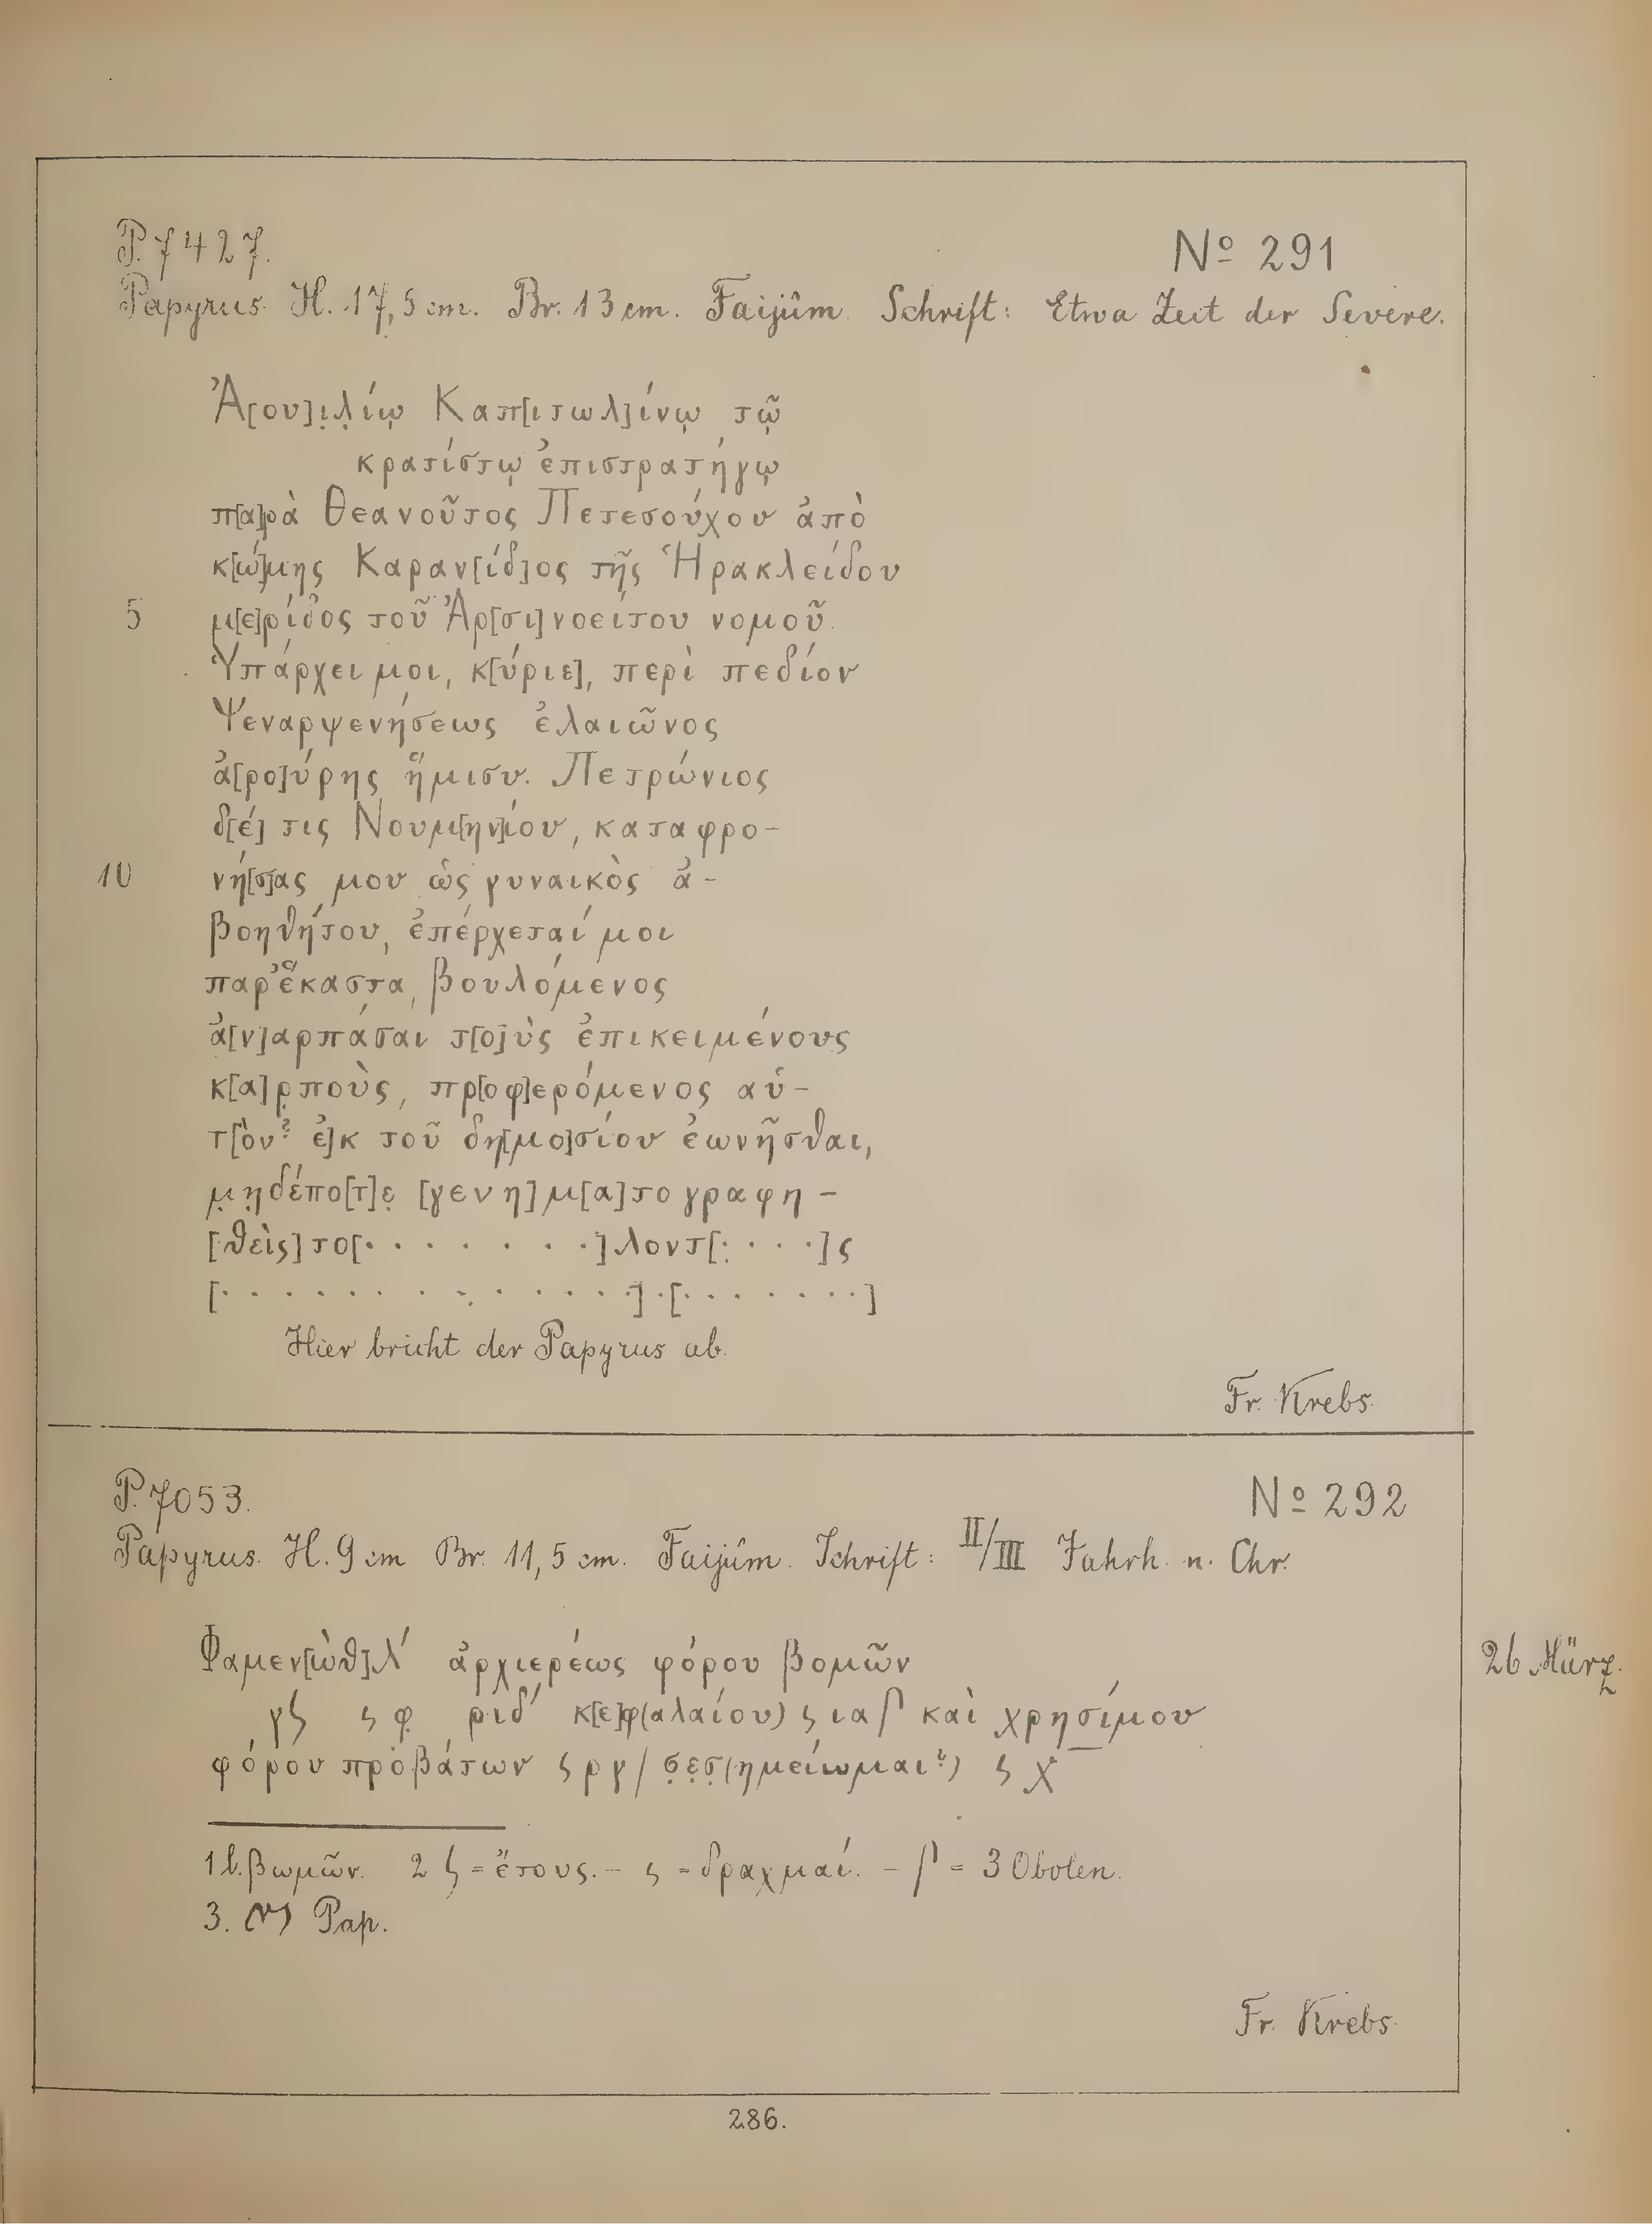 P. 7427.
Nº 291
Papyrus. H. 17,5 cm. Br. 13 cm. Faijûm. Schrift: Etwa Zeit der Severe.
Ἀ[ου]ι̣λ̣ίῳ Καπ[ιτωλ]ίνῳ τῷ
κρατίστῳ ἐπιστρατήγῳ
π[α]ρὰ Θεανοῦτος Πετεσούχου ἀπὸ
κ[ώ]μης Καραν[ίδ]ος τῆς Ἡρακλείδου
5 μ[ε]ρίδος τοῦ Ἀρ[σι]νοείτου νομοῦ.
Ὑπάρχει μοι, κ[ύριε], περὶ πεδίον
Ψεναρψενήσεως ἐλαιῶνος
ἀ[ρο]ύρης ἥμισυ. Πετρώνιος
δ[έ] τις Νουμ[ην]ίου, καταφρο-
10 νή[σ]ας μου ὡς γυναικὸς ἀ-
βοηθήτου, ἐπέρχεταί μοι
παρ᾽ ἕκαστα, βουλόμενος
ἀ[ν]αρπάσαι τ[ο]ὺς ἐπικειμένους
κ[α]ρ̣ποὺς, πρ[οφ]ερόμενος αὑ-
τ[όν? ἐ]κ τοῦ δη[μο]σίου ἐωνῆσθαι,
μ̣η̣δέπο[τ]ε̣ [γενη]μ[α]τογραφη-
[θεὶς] το[· · · · · · ·]λοντ[· · · ·]ς
[· · · · · · · · · · · · ·]·[· · · · · · ·]
Hier bricht der Papyrus ab.
Fr. Krebs.
P. 7053.
Nº 292
Papyrus. H. 9 cm Br. 11,5 cm. Faijûm. Schrift: II/III Jahrh. n. Chr.
Φαμεν[ὼθ] λ´ ἀρχιερέως φόρου βομῶν 26 März.
γϛ ϛ φ̣ ριδ´ κ[ε]φ(αλαίου) ϛ ια ʃ καὶ χρησίμου
φόρου προβάτων ϛ ργ / σ̣ε̣σ̣(ημείωμαι?) ϛ χ
1 l. βωμῶν. 2 ϛ = ἔτους. – ϛ = δραχμαί. – ʃ = 3 Obolen.
3. Pap.
Fr. Krebs.
286.